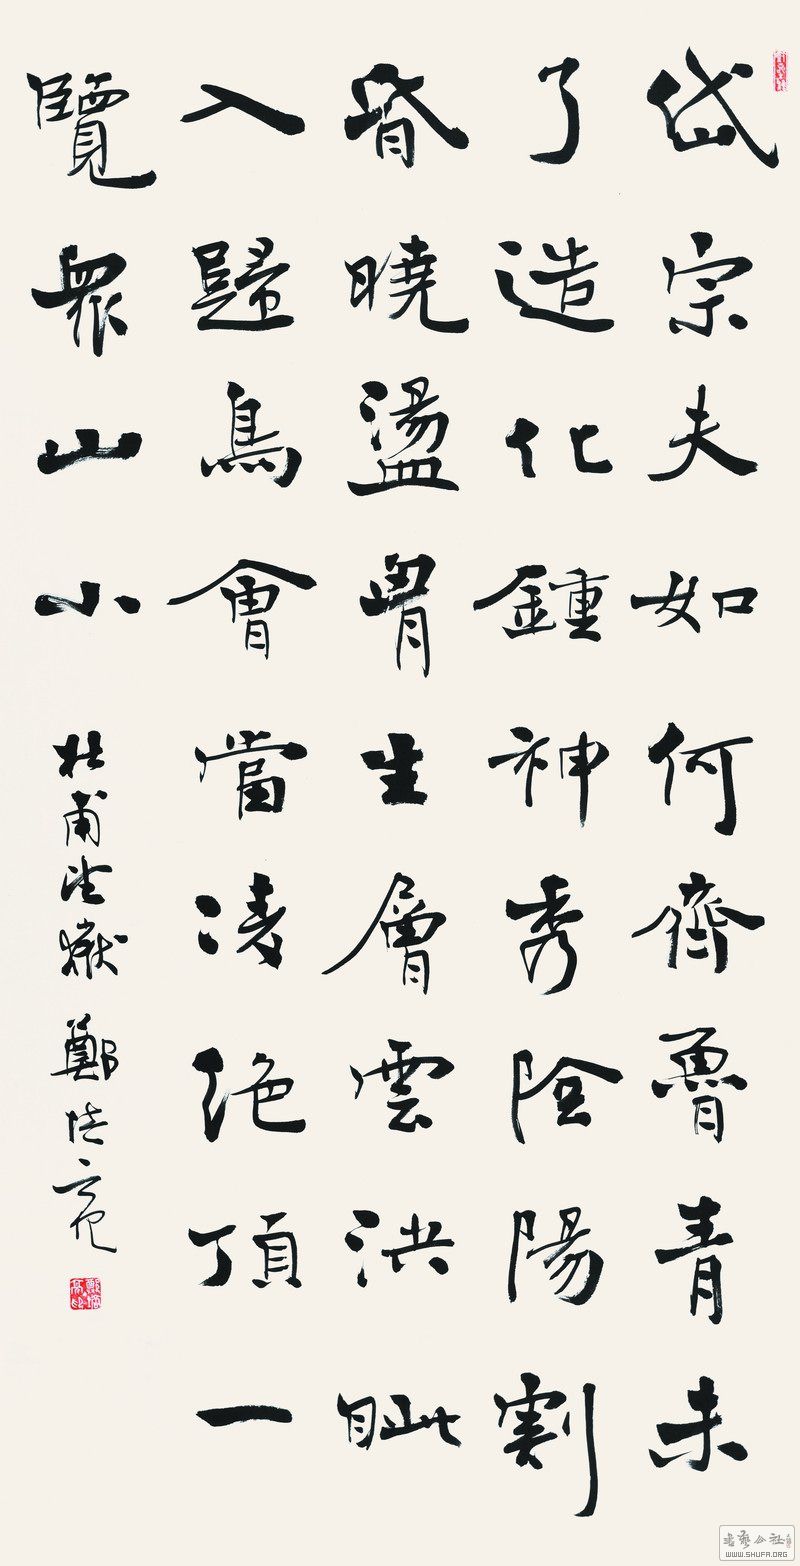 岱宗夫如何齊魯青未
了造化鍾神秀陰陽割
昏曉盪胷生層雲決眦
入歸鳥會當凌絕頂一
覽眾山小
杜甫望嶽 鄭培亮
書藝公社
WWW.SHUFA.ORG